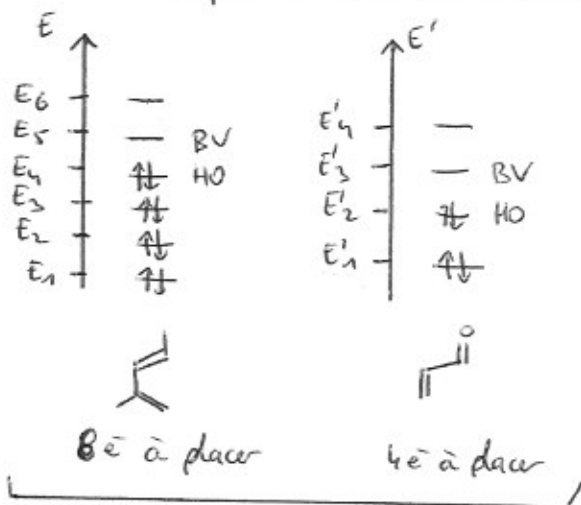 E
E₆
E₅ BV
E₄ HO
E₃
E₂
E₁
8 é à placer
E'
E'₄
E'₃ BV
E'₂ HO
E'₁
O
4 é à placer